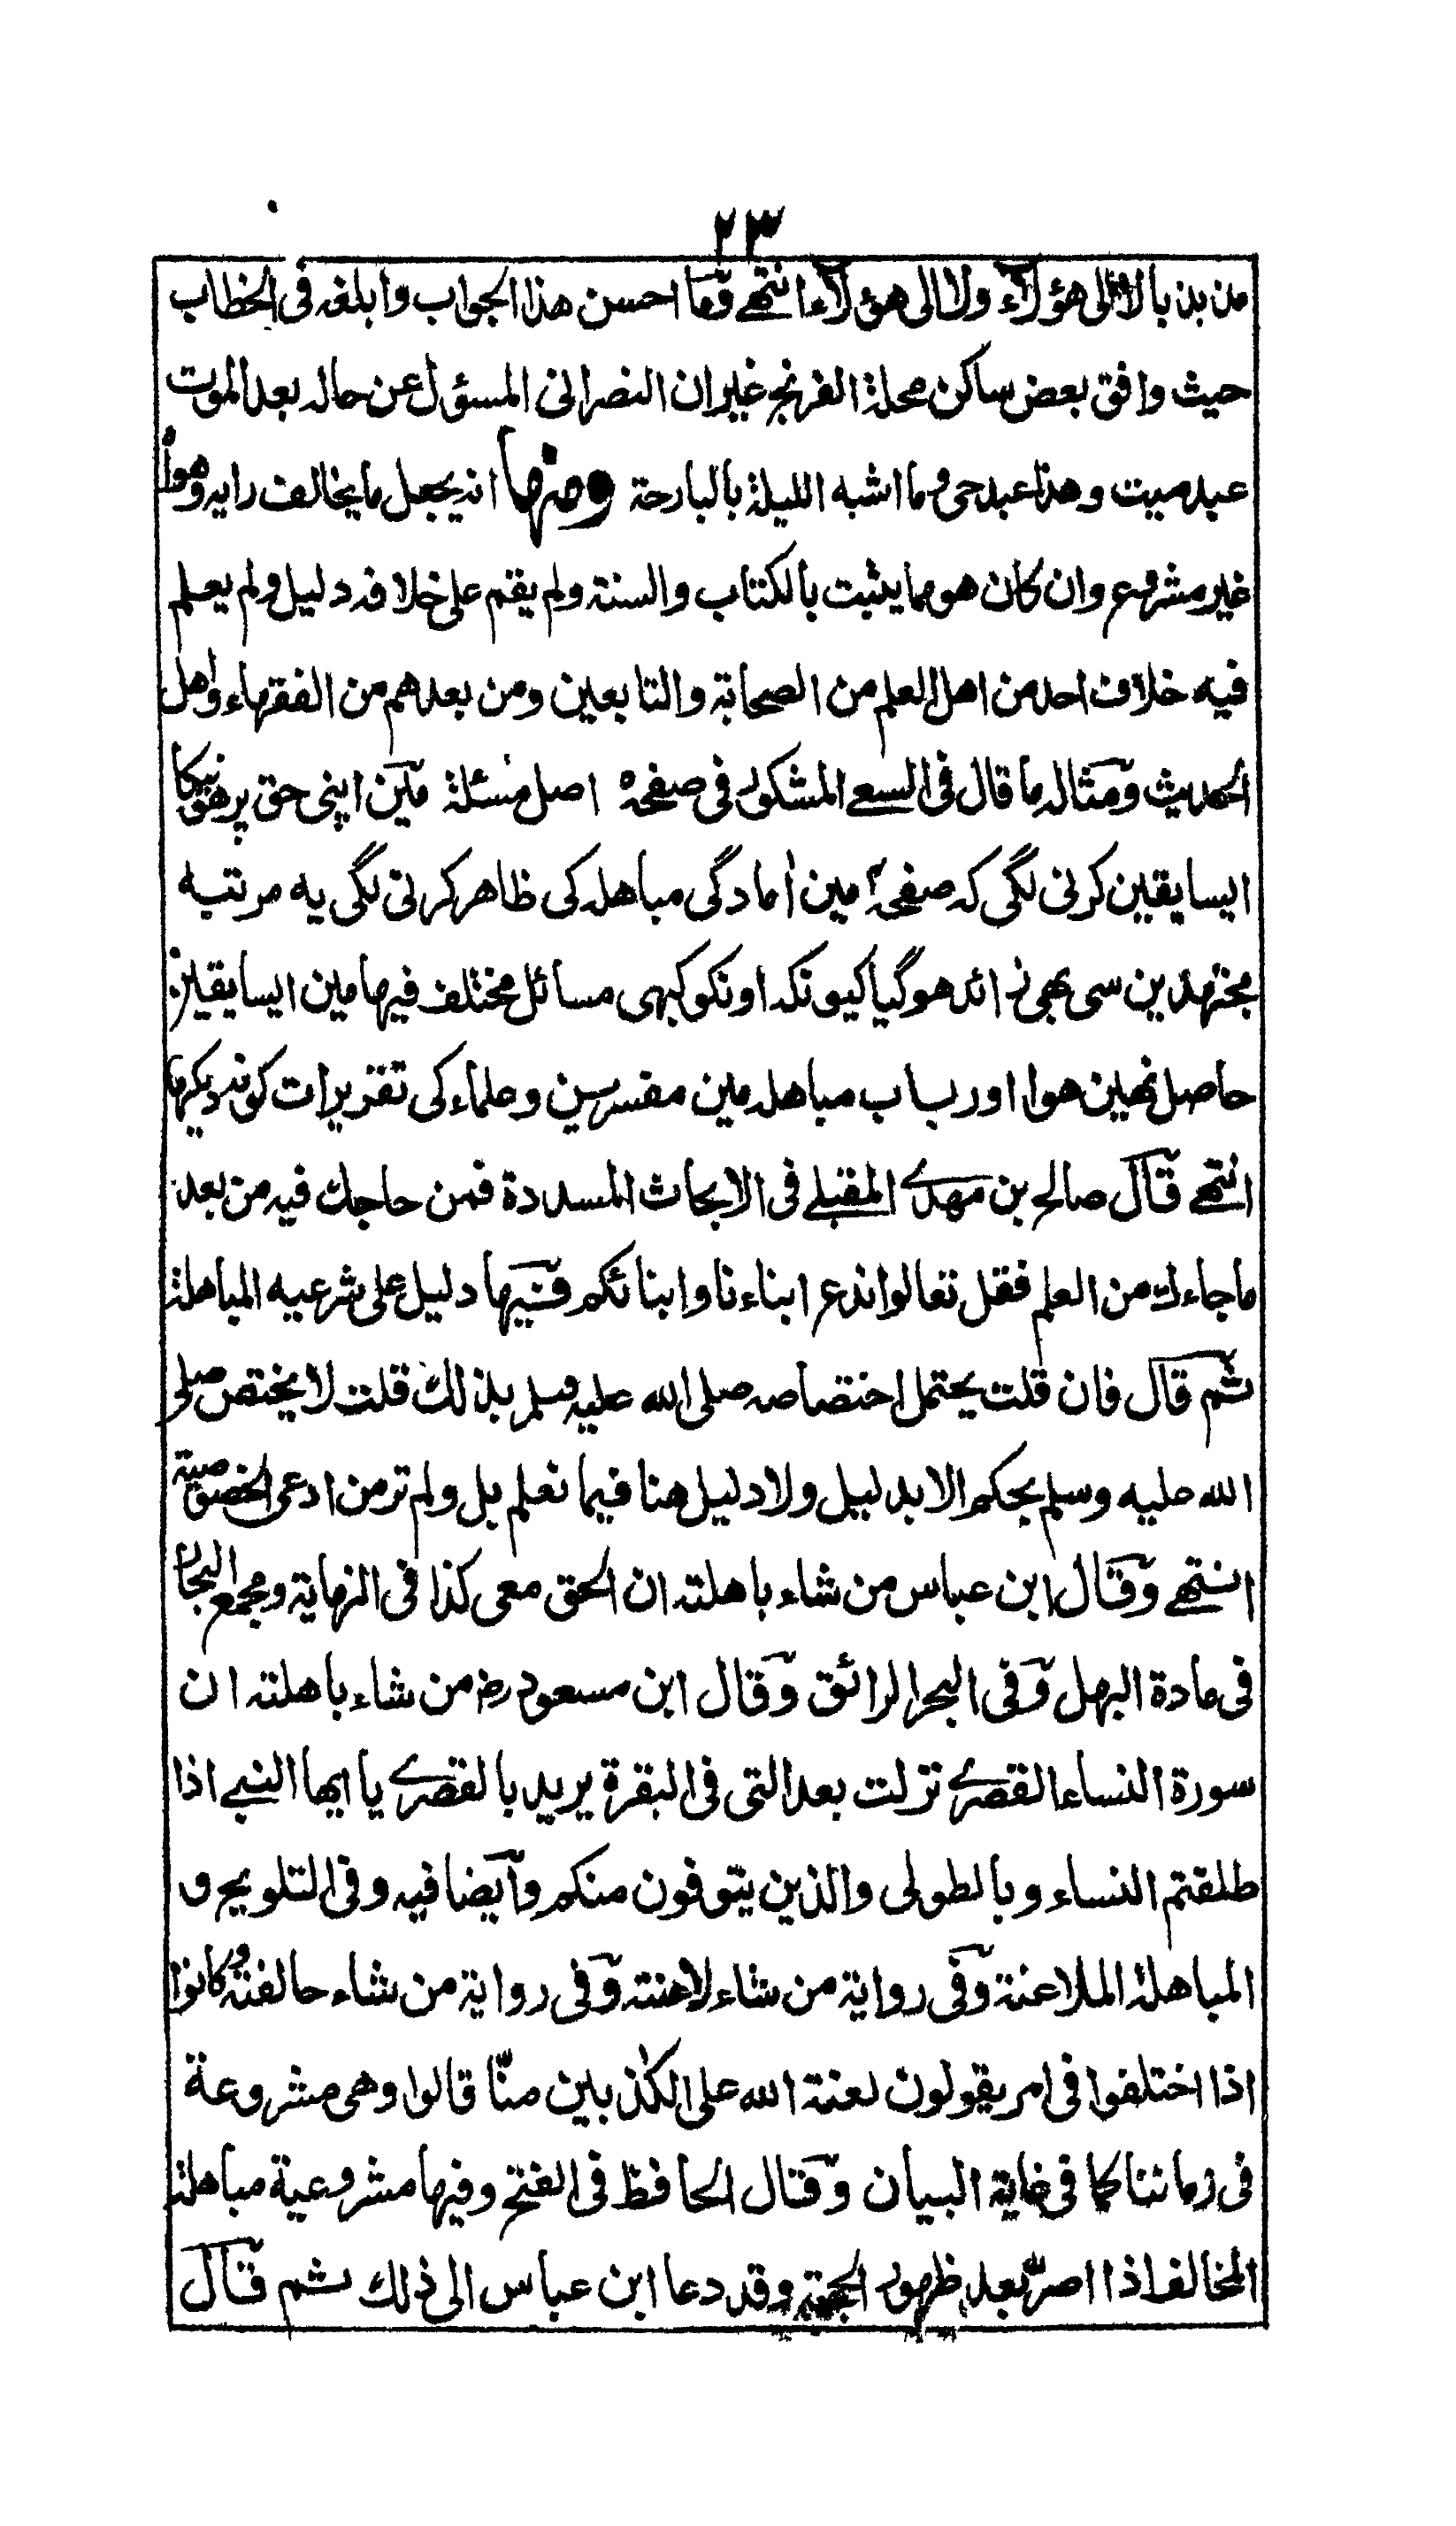 ٢٣
مذبذبا لا الى هؤلاء ولا الى هؤلاء انتهے وما احسن هذا الجواب وابلغه فى الخطاب
حيث وافق بعض ساكن محلة الفرنج غير ان النصرانى المسؤل عن حاله بعد الموت
عبد ميت وهذا عبد حى وما اشبه الليلة بالبارحة ومنها انه يجعل ما يخالف رايه وهواه
غير مشروع وان كان هو مما يثبت بالكتاب والسنة ولم يقم على خلافه دليل ولم يعلم
فيه خلاف احد من اهل العلم من الصحابة والتابعين ومن بعدهم من الفقهاء واهل
الحديث ومثاله ما قال فى السعے المشكور فى صفحه اصل مسئلة مين اپنى حق پر هونيكا
ايسا يقين كرنى لگى كه صفحه مين اٰمادگى مباهله كى ظاهر كرنى لگى يه مرتبه
مجتهدين سى بهى زائد هوگيا كيونكه اونكو كبهى مسائل مختلف فيها مين ايسا يقين
حاصل نهين هوا اور باب مباهله مين مفسرين وعلماء كى تقريرات كو نه ديكها
انتهے قال صالح بن مهدے المقبلے فى الابحاث المسددة فمن حاجك فيه من بعد
ما جاءك من العلم فقل تعالوا ندع ابناءنا وابنائكم فيها دليل على شرعيه المباهلة
ثم قال فان قلت يحتمل اختصاصه صلى الله عليه وسلم بذلك قلت لا يختص صلى
الله عليه وسلم بحكم الا بدليل ولا دليل هنا فيما نعلم بل ولم تر من ادعى الخصوصية
انتهے وقال ابن عباس من شاء باهلته ان الحق معى كذا فى النهاية ومجمع البحار
فى مادة البهل وفى البحر الرائق وقال ابن مسعود رض من شاء باهلته ان
سورة النساء القصرے نزلت بعد التى فى البقرة يريد بالقصرے يا ايها النبے اذا
طلقتم النساء وبالطولى والذين يتوفون منكم وايضا فيه وفى التلويح و
المباهلة الملاعنة وفى رواية من شاء لاعنته وفى رواية من شاء حالفته وكانوا
اذا اختلفوا فى امر يقولون لعنة الله على الكٰذبين منّا قالوا وهى مشروعة
فى زماننا كما فى غاية البيان وقال الحافظ فى الفتح وفيها مشروعية مباهلة
المخالف اذا اصرّ بعد ظهور الحجة وقد دعا ابن عباس الى ذلك ثم قال